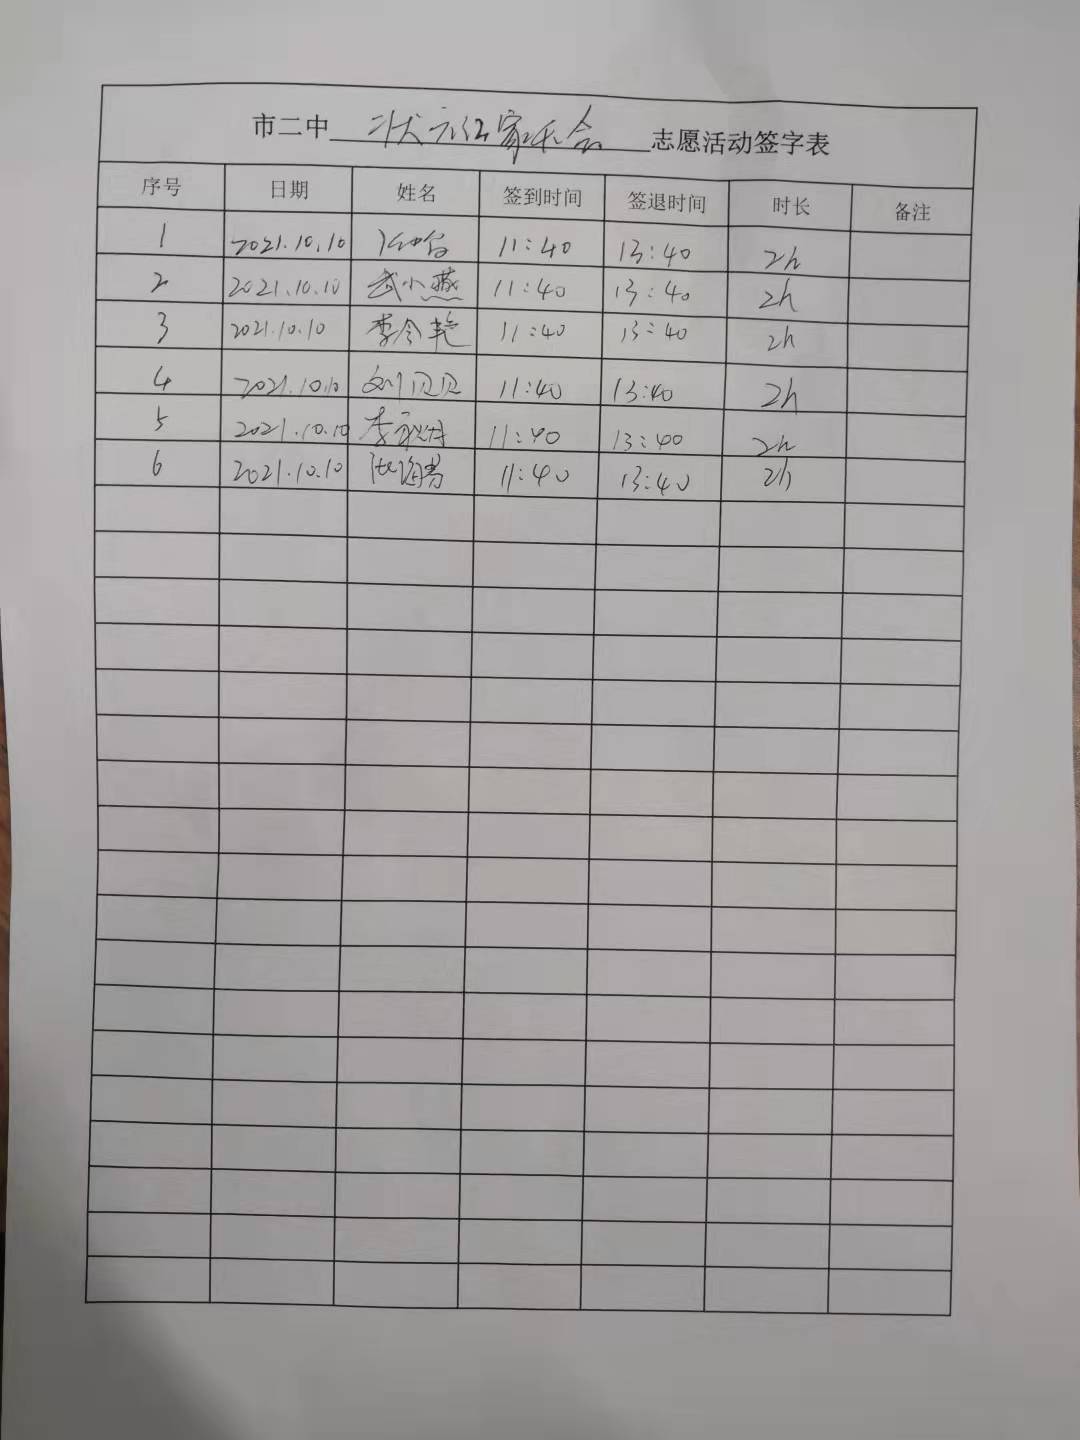 市二中 状元红家长会 志愿活动签字表
序号 日期 姓名 签到时间 签退时间 时长 备注
1 2021.10.10 11:40 13:40 2h
2 2021.10.10 武小燕 11:40 13:40 2h
3 2021.10.10 李令艳 11:40 13:40 2h
4 2021.10.10 刘贝贝 11:40 13:40 2h
5 2021.10.10 李 11:40 13:40 2h
6 2021.10.10 11:40 13:40 2h